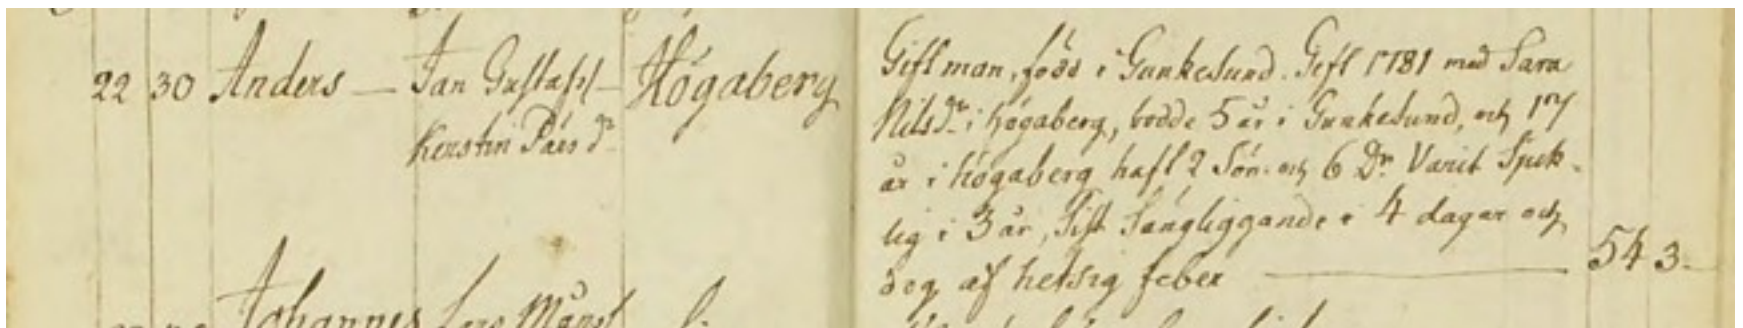 22 30 Anders — Jan Gustafss- Högaberg
Kerstin Pärs dr
Gift man, född i Gunkesund. Gift 1781 med Sara
Nilsdr i Högaberg, bodde 5 år i Gunkesund, och 17
år i Högaberg haft 2 Sön. och 6 Dr. Varit Sjuk-
lig i 3 år, Sist Sängliggande i 4 dagar och
dog af hetsig feber — 54 3-
Johannes Lars Månss